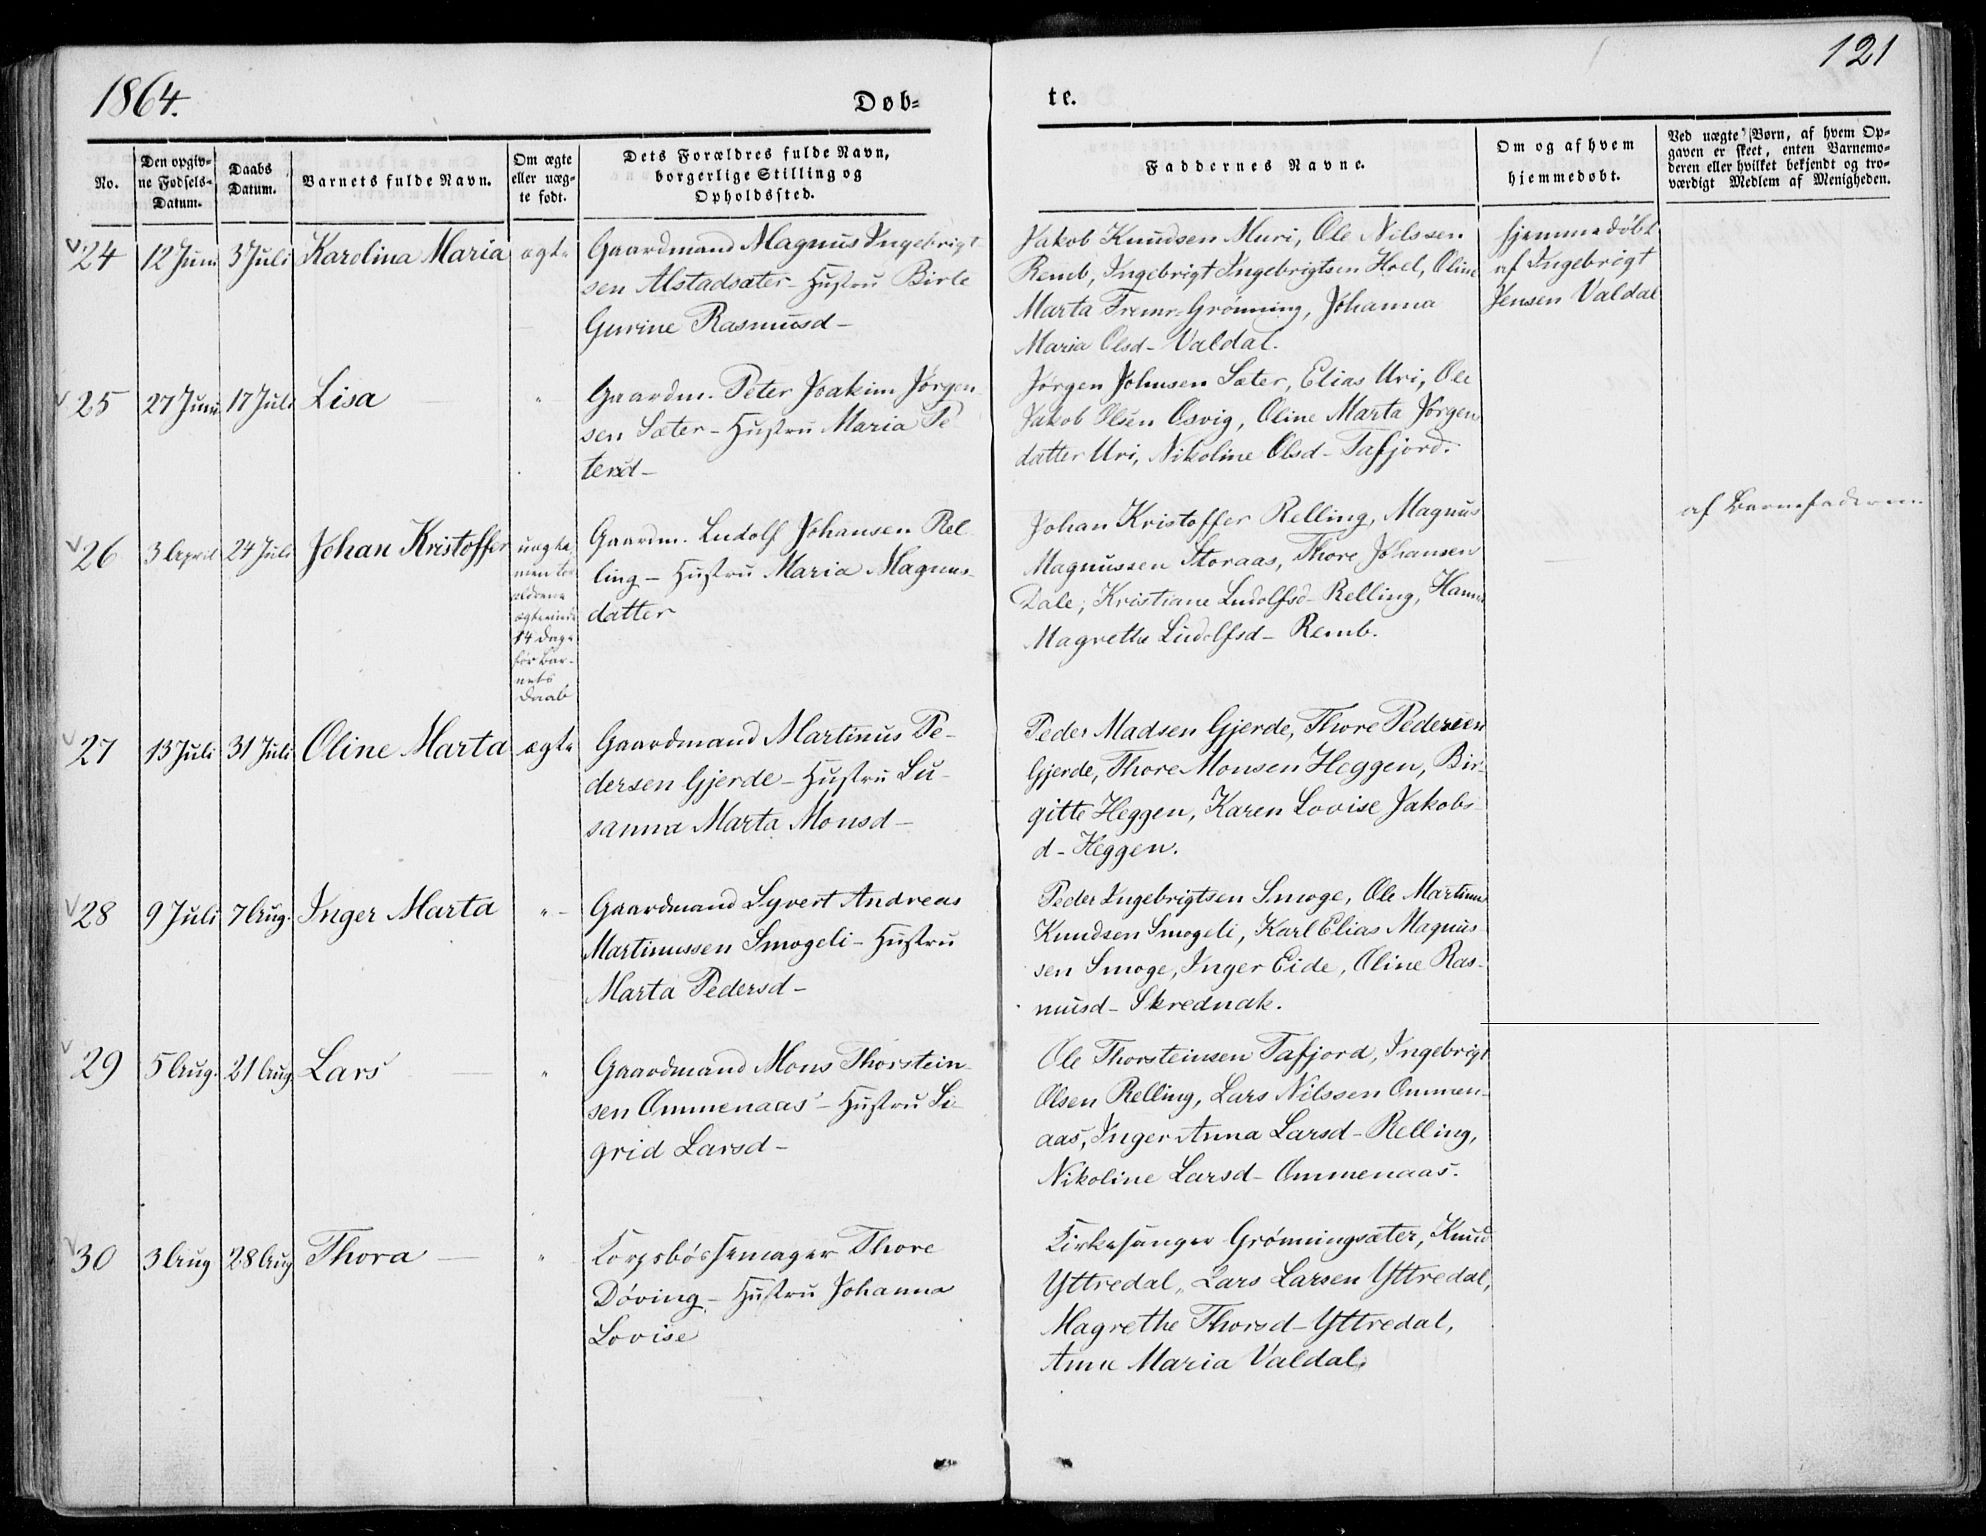 1864.
Døb=
te.
121
No.
Den opgiv-
ne Fødsels-
Datum.
Daabs
Datum.
Barnets fulde Navn.
Om ægte
eller uæg-
te født.
Dets Forældres fulde Navn,
borgerlige Stilling og
Opholdssted.
Faddernes Navne.
Om og af hvem
hjemmedøbt.
Ved uægte Børn, af hvem Op-
gaven er skeet, enten Barnemo-
deren eller hvilket bekjendt og tro-
værdigt Medlem af Menigheden.
24
12 Juni
3 Juli
Karolina Maria
ægte
Gaardmand Magnus Ingebrigt
sen Alstadsæter - Hustru Birte
Gurine Rasmusd -
Jakob Knudsen Muri, Ole Nilssen
Remb, Ingebrigt Ingebrigtsen Hoel, Oline
Marta Grønning, Johanna
Maria Olsd - Valdal.
hjemmedøbt
af Ingebrigt
Jensen Valdal
25
27 Juni
17 Juli
Lisa
"
Gaardm. Peter Joakim Jørgen
sen Sæter - Hustru Maria Pe
tersd -
Jørgen Johnsen Sæter, Elias Uri, Ole
Jakob Olsen Osvig, Oline Marta Jørgen
datter Uri, Nikoline Olsd - Tafjord.
26
3 April
24 Juli
Johan Kristoffer
uægte,
men for
ældrene
ægteviede
14 Dage
før Bar-
nets
Daab
Gaardm. Ludolf Johansen Rel
ling - Hustru Maria Magnus-
datter
Johan Kristoffer Relling, Magnus
Magnussen Storaas, Thore Johansen
Dale, Kristiane Ludolfsd - Relling, Hanna
Magrethe Ludolfsd - Remb.
af Barnefaderen
27
13 Juli
31 Juli
Oline Marta
ægte
Gaardmand Martinus Pe-
dersen Gjerde - Hustru Su-
sanna Marta Monsd -
Peder Madsen Gjerde, Thore Pedersen
Gjerde, Thore Monsen Heggen, Bir-
gitte Heggen, Karen Lovise Jakobs-
d - Heggen.
28
9 Juli
7 Aug.
Inger Marta
" -
Gaardmand Syvert Andreas
Martinussen Smogeli - Hustru
Marta Pedersd -
Peder Ingebrigtsen Smoge, Ole Martinus
Knudsen Smogeli, Karl Elias Magnus
sen Smoge, Inger Eide, Oline Ras-
musd - Skrednak.
29
5 Aug.
21 Aug.
Lars
"
Gaardmand Mons Thorstein-
sen Ommenaas - Hustru Si-
grid Larsd -
Ole Thorsteinsen Tafjord, Ingebrigt
Olsen Relling, Lars Nilssen Ommen-
aas, Inger Anna Larsd - Relling,
Nikoline Larsd - Ommenaas.
30
3 Aug
28 Aug
Thora
"
Korpsbøssemager Thore
Døving - Hustru Johanna
Lovise
Kirkesanger Grønningsæter, Knud
Yttredal, Lars Larsen Yttredal,
Magrethe Thorsd - Yttredal,
Anne Maria Valdal.